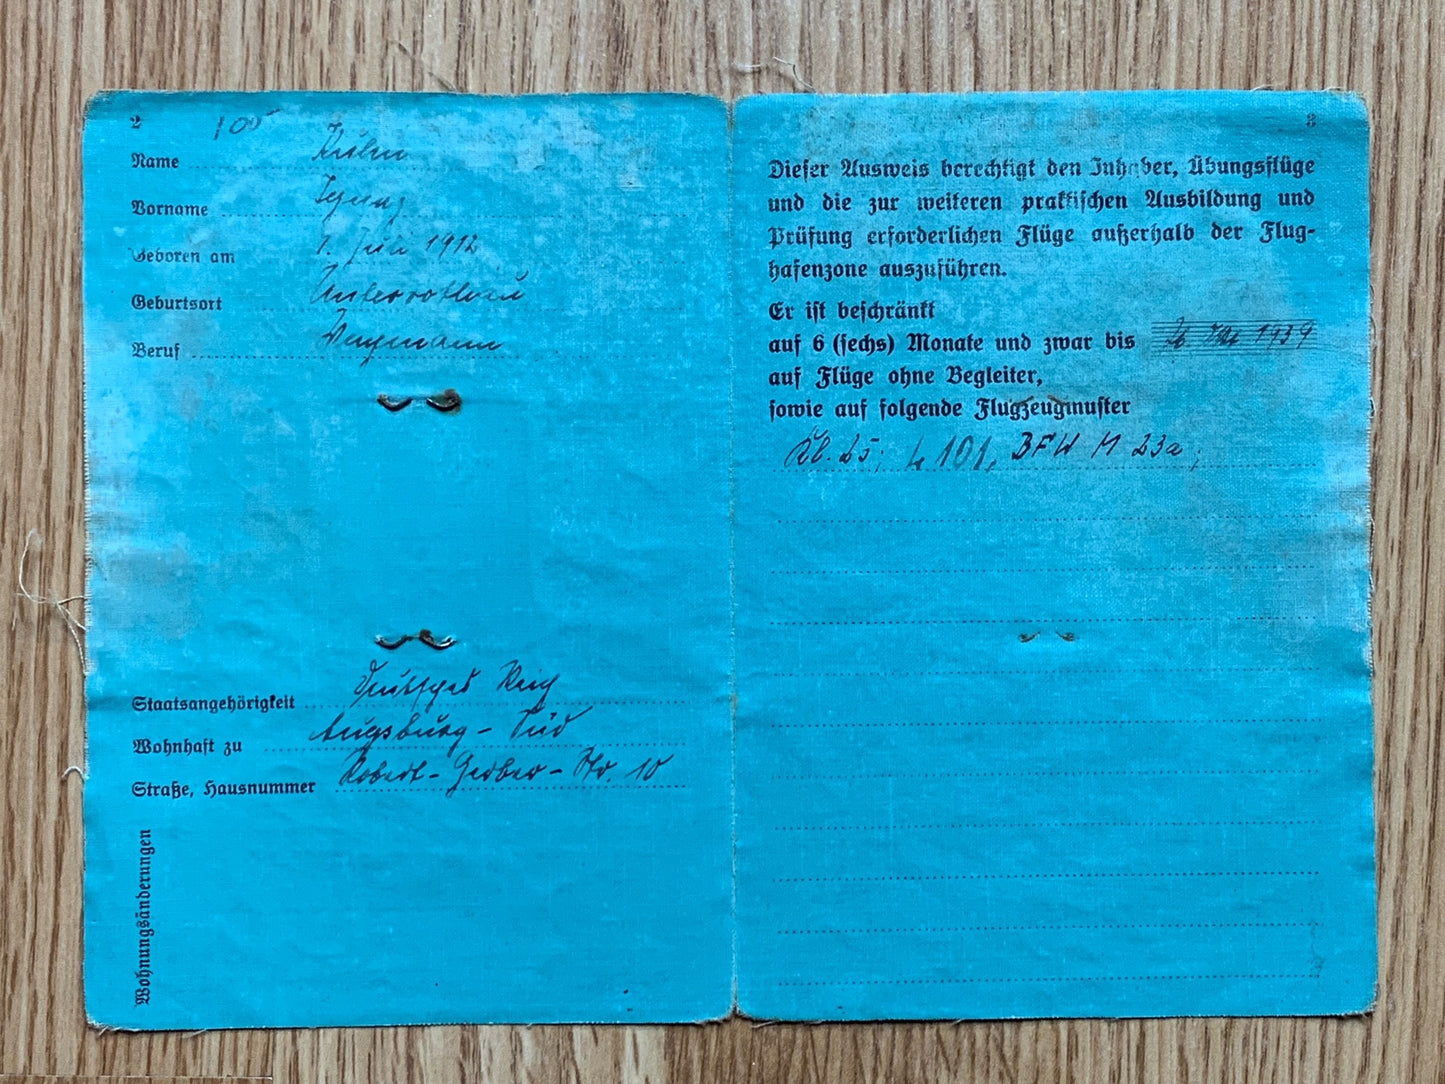 2
105
Name Kuhn
Vorname Ignaz
Geboren am 1. Juli 1912
Geburtsort Unterrothau
Beruf
Staatsangehörigkeit Deutsches Reich
Wohnhaft zu Augsburg - Süd
Straße, Hausnummer Robert - Gerber - Str. 10
Wohnungsänderungen
3
Dieser Ausweis berechtigt den Inhaber, Übungsflüge
und die zur weiteren praktischen Ausbildung und
Prüfung erforderlichen Flüge außerhalb der Flug-
hafenzone auszuführen.
Er ist beschränkt
auf 6 (sechs) Monate und zwar bis 1939
auf Flüge ohne Begleiter,
sowie auf folgende Flugzeugmuster
Kl. 25; L 101, BFW M 23a;